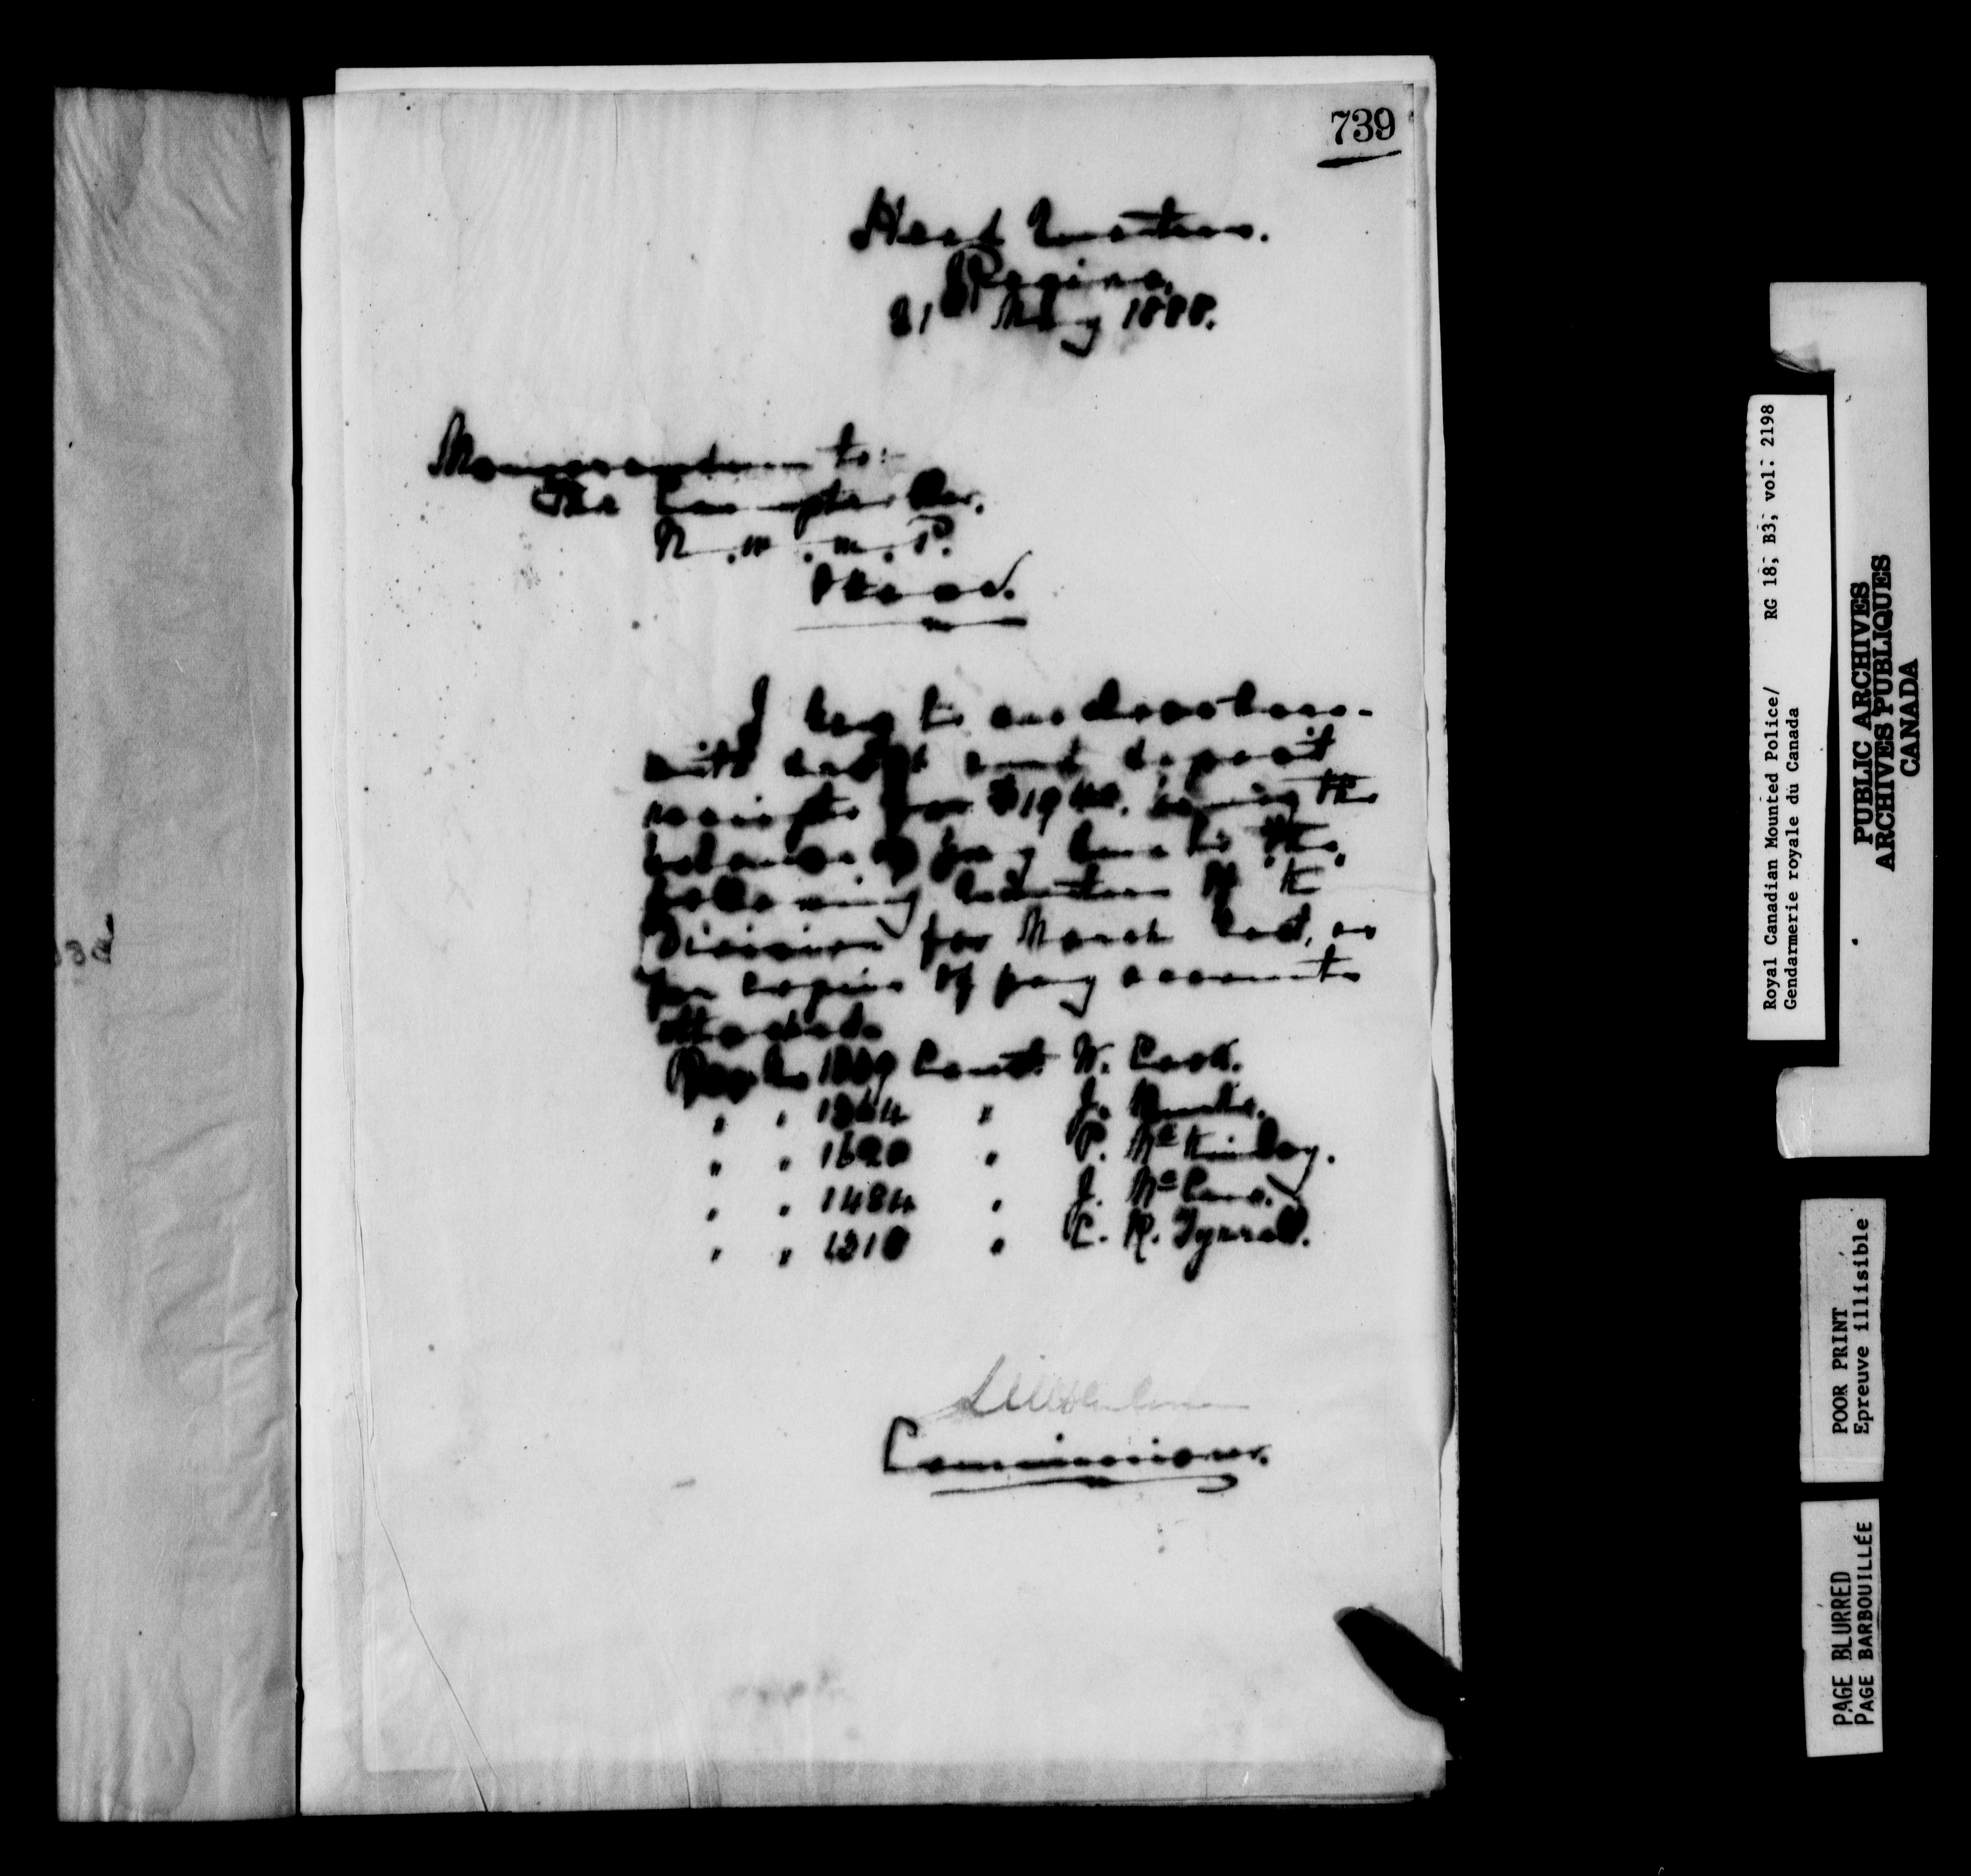 739
Head Quarters.
Regina,
21st May 1888.
Memorandum to:-
The Comptroller.
N.W.M.P.
Ottawa.
I beg to enclose here-
with bank deposit
receipts for $19 being the
balance of pay due to the
following deserters of "K"
Division for March last, as
per copies of pay accounts
attached.
Reg. No 1809 Const. W. Cook.
" " 1864 " J.
" " 1620 " P. McKinlay.
" " 1484 " J.
" " 1210 " C. R. Tyrrell.
Commissioner.
Royal Canadian Mounted Police/ RG 18, B3, vol. 2198
Gendarmerie royale du Canada
PUBLIC ARCHIVES
ARCHIVES PUBLIQUES
CANADA
POOR PRINT
Epreuve illisible
PAGE BLURRED
PAGE BARBOUILLÉE